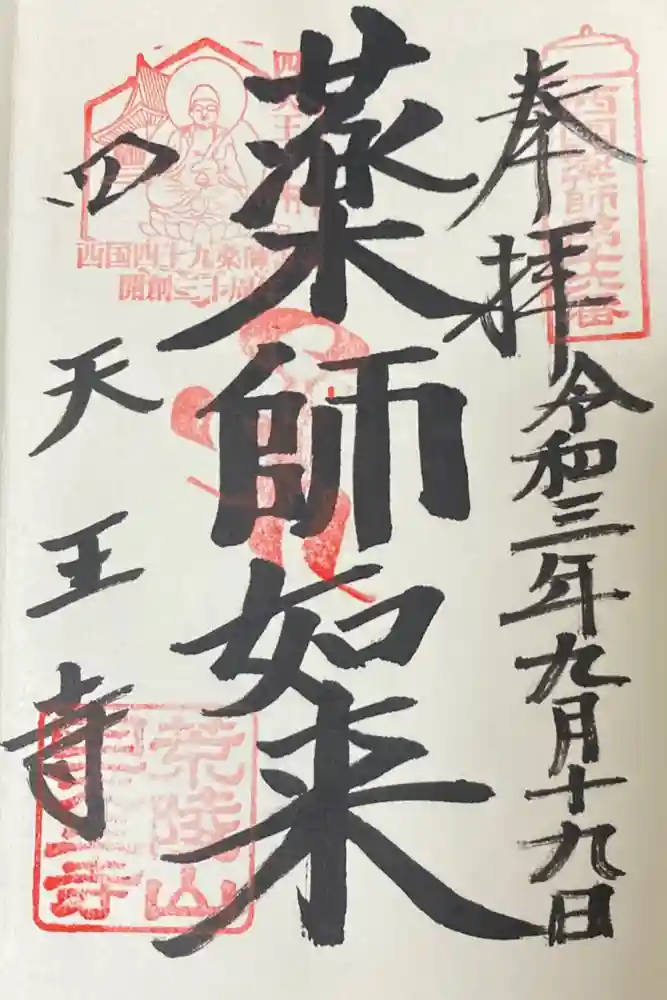 奉拝
令和三年九月十九日
西国薬師第十六番
薬師如来
四天王寺
西国四十九薬師
開創三十周
荒陵山
四天王寺